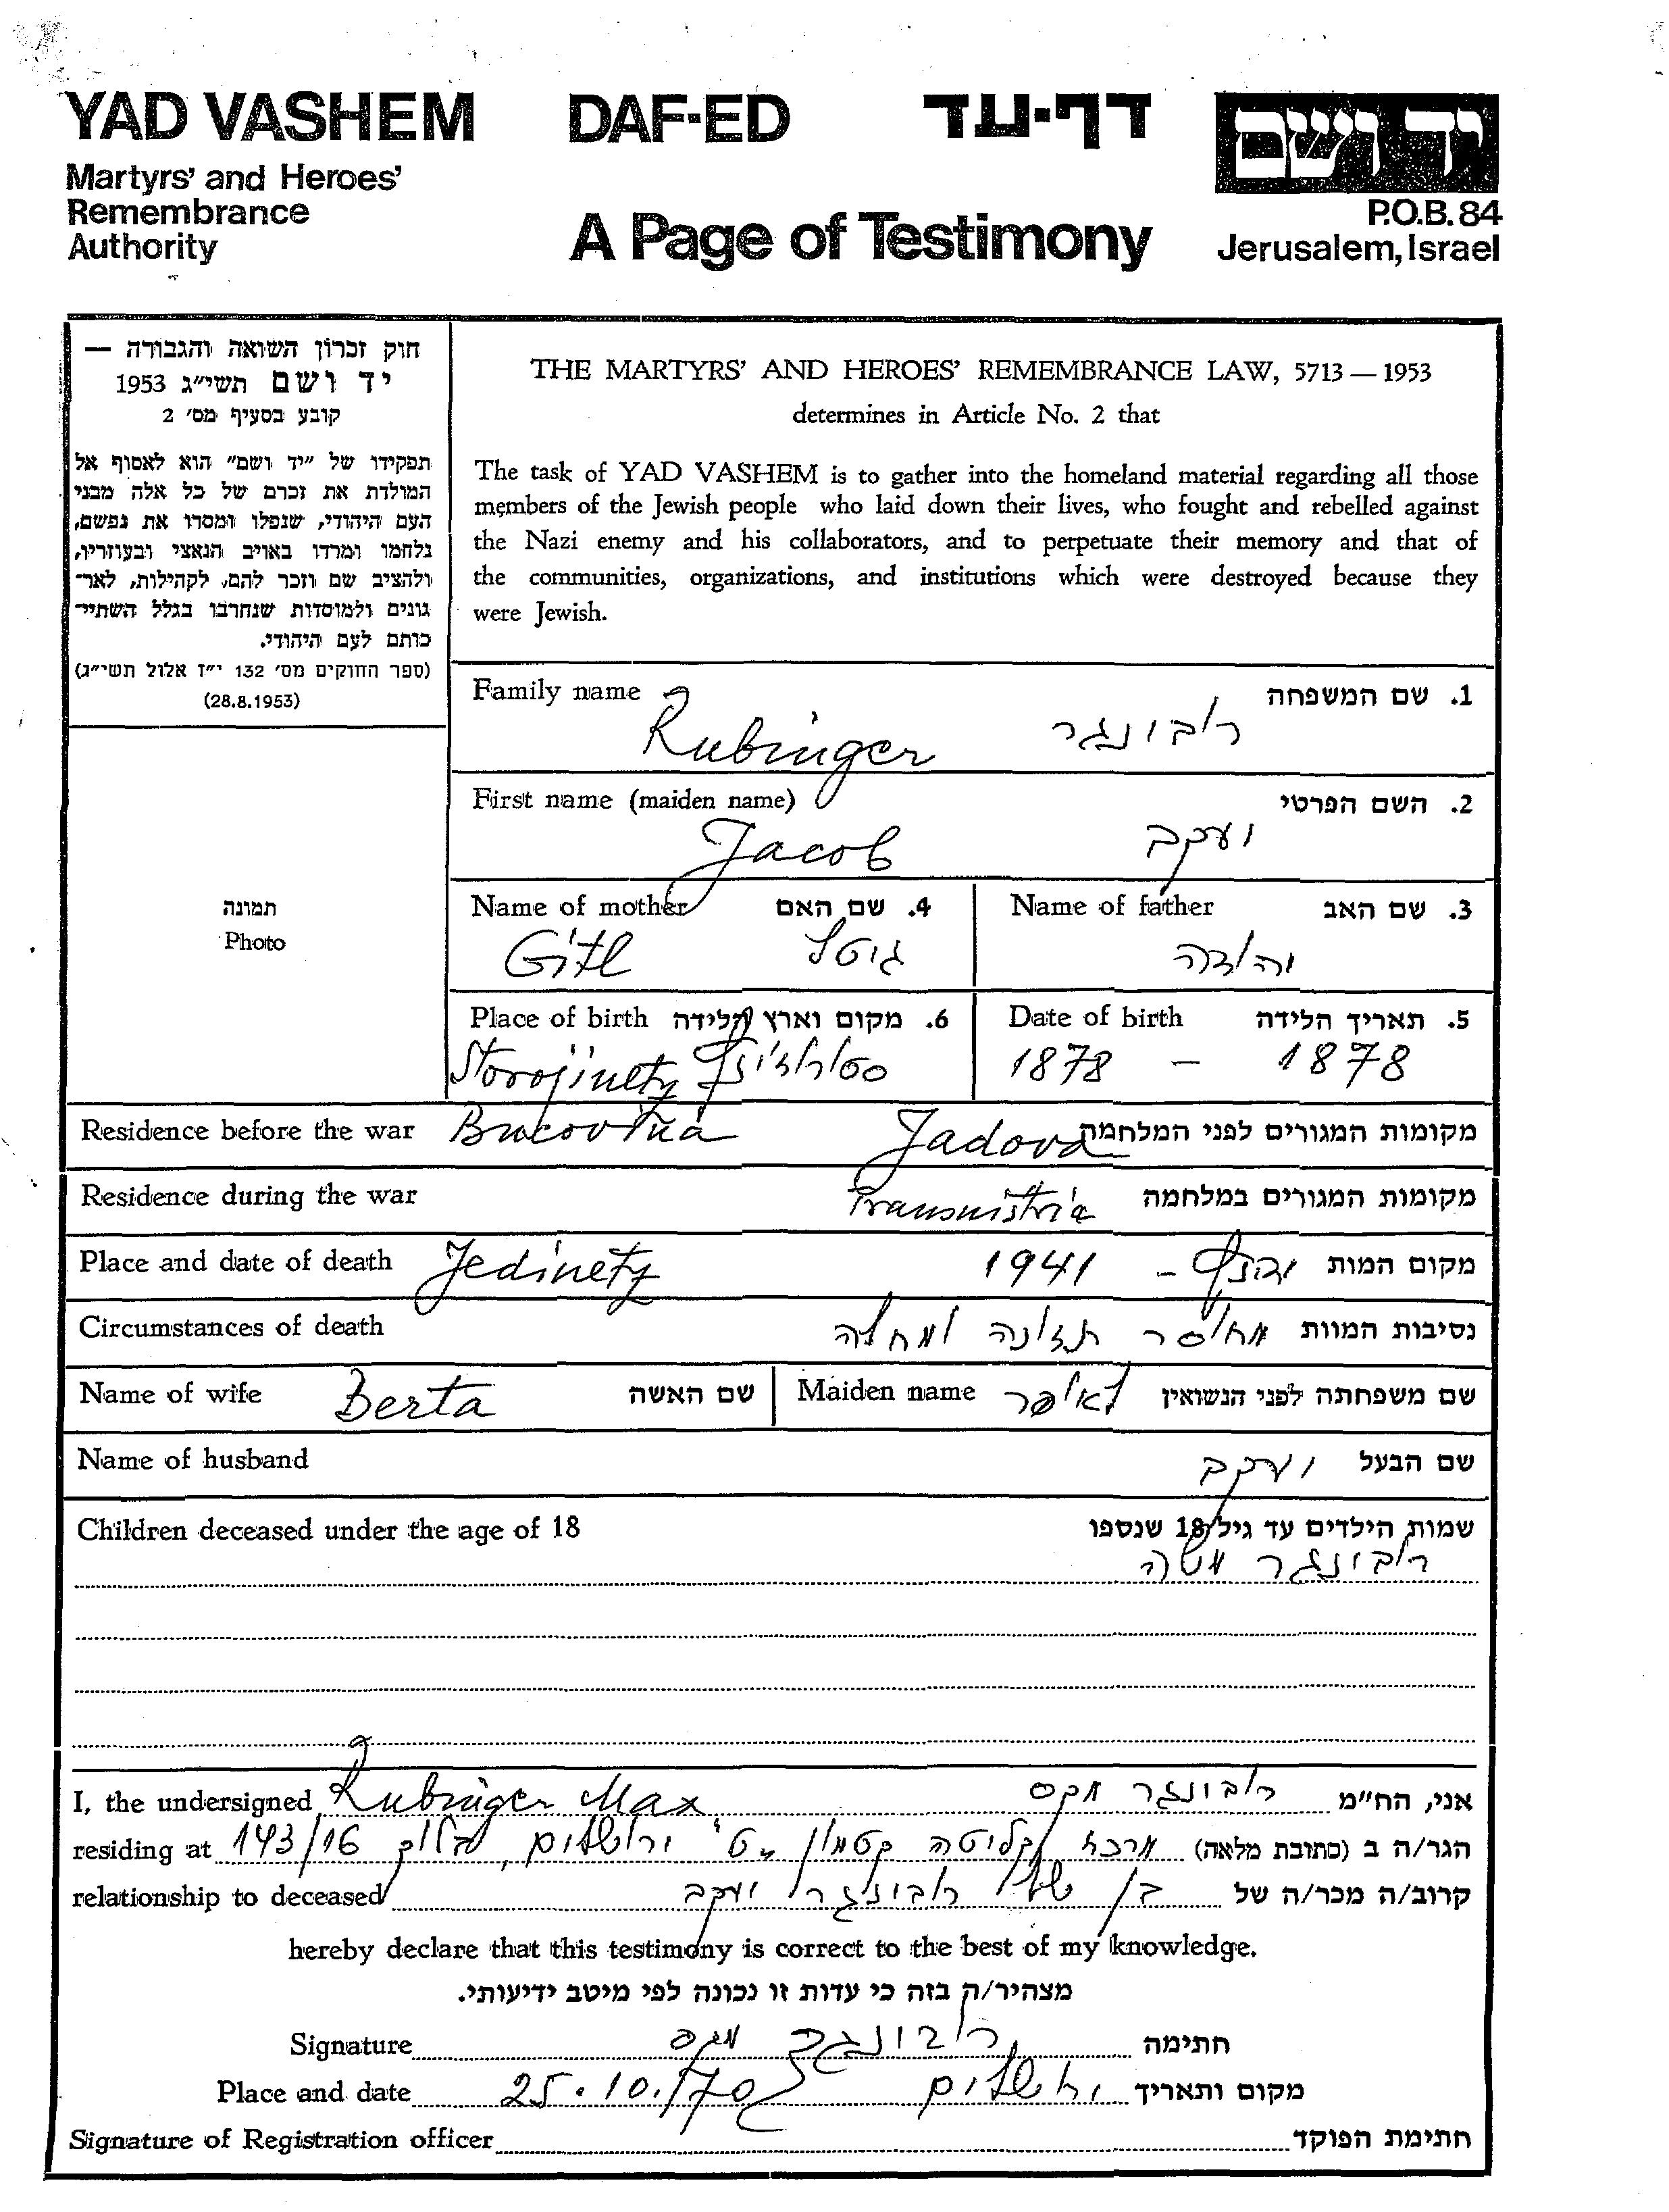 YAD VASHEM DAF-ED דף-עד יד ושם
Martyrs' and Heroes'
Remembrance
Authority
A Page of Testimony
P.O.B. 84
Jerusalem, Israel
חוק זכרון השואה והגבורה —
יד ושם תשי״ג 1953
קובע בסעיף מס׳ 2
תפקידו של ״יד ושם״ הוא לאסוף אל
המולדת את זכרם של כל אלה מבני
העם היהודי, שנפלו ומסרו את נפשם,
נלחמו ומרדו באויב הנאצי ובעוזריו,
ולהציב שם וזכר להם, לקהילות, לאר־
גונים ולמוסדות שנחרבו בגלל השתיי־
כותם לעם היהודי.
(ספר החוקים מס׳ 132 י״ז אלול תשי״ג)
(28.8.1953)
תמונה
Photo
THE MARTYRS' AND HEROES' REMEMBRANCE LAW, 5713 — 1953
determines in Article No. 2 that
The task of YAD VASHEM is to gather into the homeland material regarding all those
members of the Jewish people who laid down their lives, who fought and rebelled against
the Nazi enemy and his collaborators, and to perpetuate their memory and that of
the communities, organizations, and institutions which were destroyed because they
were Jewish.
Family name 1. שם המשפחה
Rubinger רובינגר
First name (maiden name) 2. השם הפרטי
Jacob יעקב
Name of mother 4. שם האם Name of father 3. שם האב
Gitl גיטל יהודה
Place of birth 6. מקום וארץ הלידה Date of birth 5. תאריך הלידה
Storojinetz סטורוז'ינץ 1878 - 1878
Residence before the war Bucovina Jadova מקומות המגורים לפני המלחמה
Residence during the war Transnistria מקומות המגורים במלחמה
Place and date of death Jedinetz 1941 - מקום המות
Circumstances of death נסיבות המוות מחוסר תזונה ומחלה
Name of wife Berta שם האשה Maiden name שם משפחתה לפני הנשואין לאופר
Name of husband שם הבעל יעקב
Children deceased under the age of 18 שמות הילדים עד גיל 18 שנספו
רובינגר משה
I, the undersigned Rubinger Max אני, הח״מ רובינגר מקס
residing at הגר/ה ב (כתובת מלאה) מרכז קליטה קטמון ט' ירושלים, בלוק 143/16
relationship to deceased קרוב/ה מכר/ה של בן של רובינגר יעקב
hereby declare that this testimony is correct to the best of my knowledge.
מצהיר/ה בזה כי עדות זו נכונה לפי מיטב ידיעותי.
Signature חתימה רובינגר מקס
Place and date מקום ותאריך ירושלים 25.10.1970
Signature of Registration officer חתימת הפוקד